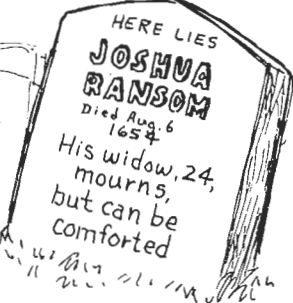 HERE LIES
JOSHUA
RANSOM
Died Aug. 6
1654
His widow, 24,
mourns,
but can be
comforted